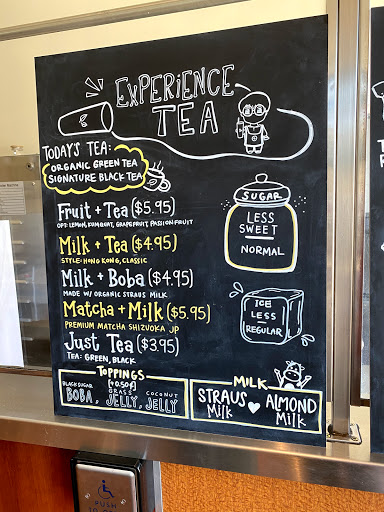 EXPERIENCE
TEA
TODAY'S TEA:
ORGANIC GREEN TEA
SIGNATURE BLACK TEA
Fruit + Tea ($5.95)
OPT: LEMON, KUMQUAT, GRAPEFRUIT, PASSIONFRUIT
Milk + Tea ($4.95)
STYLE: HONG KONG, CLASSIC
Milk + Boba ($4.95)
MADE W/ ORGANIC STRAUS MILK
Matcha + Milk ($5.95)
PREMIUM MATCHA SHIZUOKA JP
Just Tea ($3.95)
TEA: GREEN, BLACK
SUGAR
LESS
SWEET
NORMAL
ICE
LESS
REGULAR
TOPPINGS
(+0.50¢)
BLACK SUGAR
BOBA,
GRASS
JELLY,
COCONUT
JELLY
MILK
STRAUS
Milk
ALMOND
Milk
PUSH